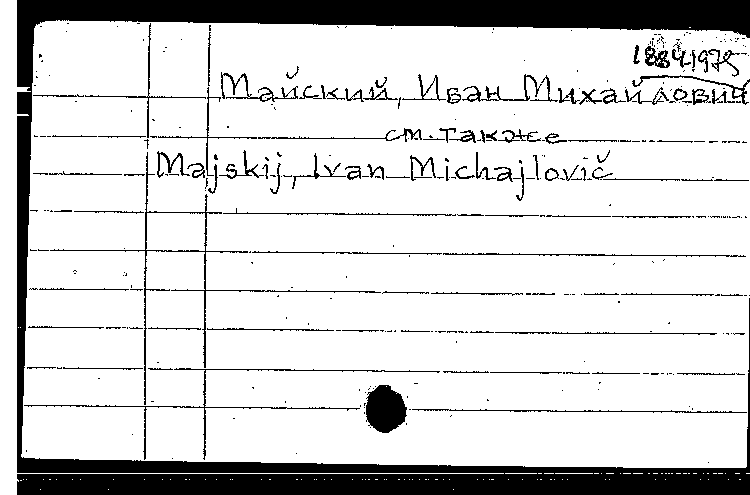 1884-1975
Майский, Иван Михайлович
см. также
Majskij, Ivan Michajlovič